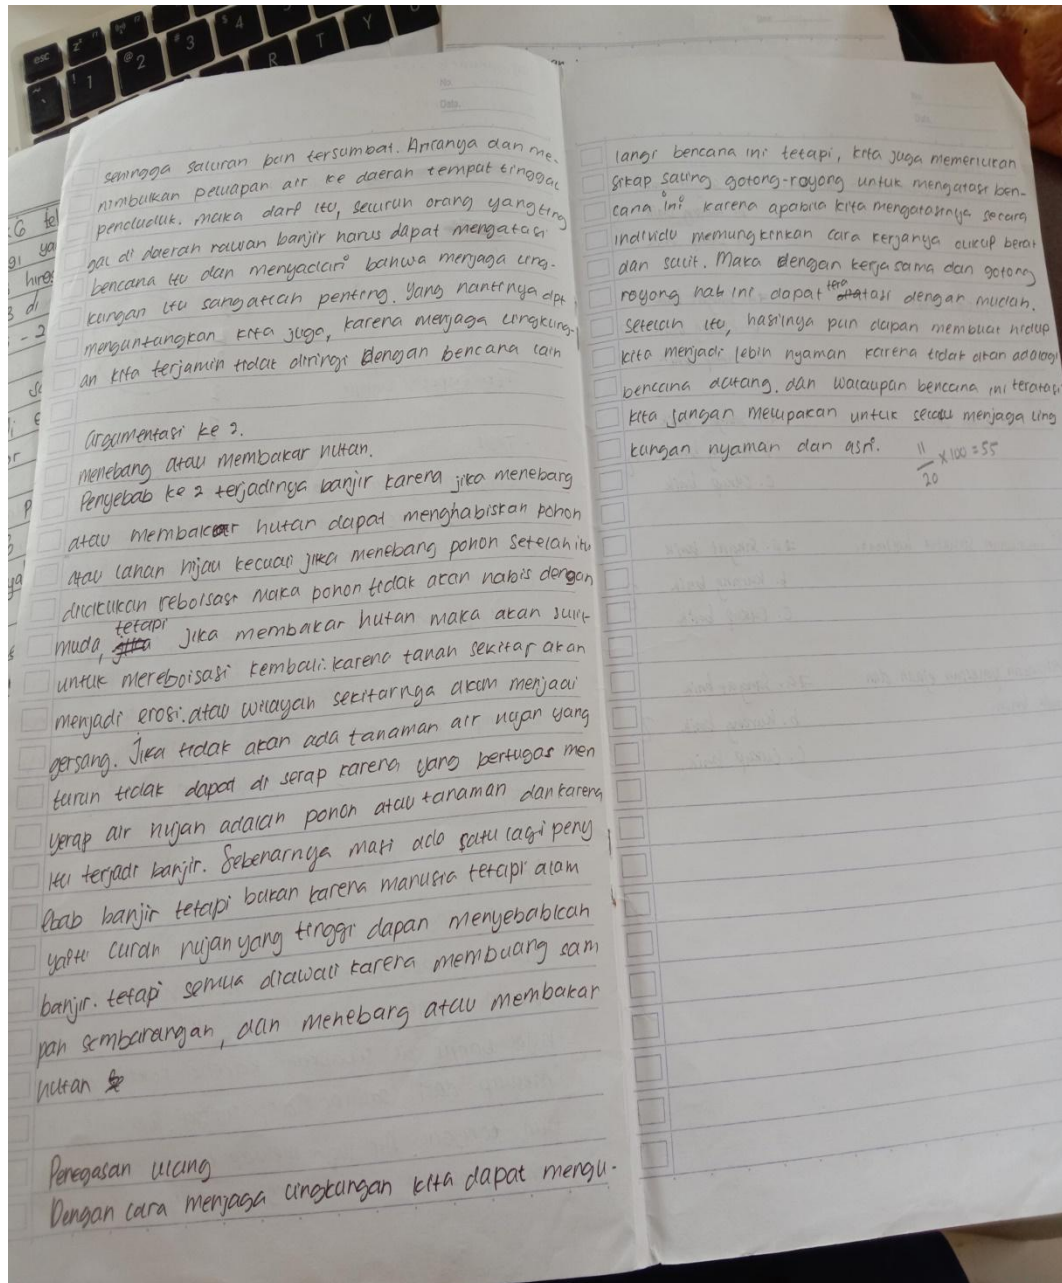 sehingga saluran pun tersumbat. Ancanya dan me-
nimbulkan peluapan air ke daerah tempat tinggal
penduduk. maka dari itu, seluruh orang yang ting
gal di daerah rawan banjir harus dapat mengatasi
bencana itu dan menyadari bahwa menjaga ling-
kungan itu sangatlah penting. Yang nantinya dpt
menguntungkan kita juga, karena menjaga lingkung-
an kita terjamin tidak diiringi dengan bencana lain
argumentasi ke 2.
menebang atau membakar hutan.
Penyebab ke 2 terjadinya banjir karena jika menebang
atau membakar hutan dapat menghabiskan pohon
atau lahan hijau kecuali jika menebang pohon setelah itu
dilakukan reboisasi maka pohon tidak akan habis dengan
muda, tetapi jika membakar hutan maka akan sulit
untuk mereboisasi kembali. karena tanah sekitar akan
menjadi erosi. atau wilayah sekitarnya akam menjadi
gersang. Jika tidak akan ada tanaman air hujan yang
turun tidak dapat di serap karena yang bertugas men
yerap air hujan adalah pohon atau tanaman dan karena
itu terjadi banjir. Sebenarnya ada satu lagi peny
ebab banjir tetapi bukan karena manusia tetapi alam
yaitu curah hujan yang tinggi dapan menyebabkan
banjir. tetapi semua diawali karena membuang sam
pah sembarangan, dan menebang atau membakar
hutan
Penegasan ulang
Dengan cara menjaga lingkungan kita dapat mengu-
langi bencana ini tetapi, kita juga memerlukan
sikap saling gotong-royong untuk mengatasi ben-
cana ini karena apabila kita mengatasinya secara
individu memungkinkan cara kerjanya cukup berat
dan sulit. Maka dengan kerja sama dan gotong
royong hal ini dapat teratasi dengan mudah.
Setelah itu, hasilnya pun dapan membuat hidup
kita menjadi lebih nyaman karena tidak akan ada lagi
bencana datang. dan walaupan bencana ini teratasi
kita jangan melupakan untuk selalu menjaga ling
kungan nyaman dan asri.
11/20 x 100 = 55